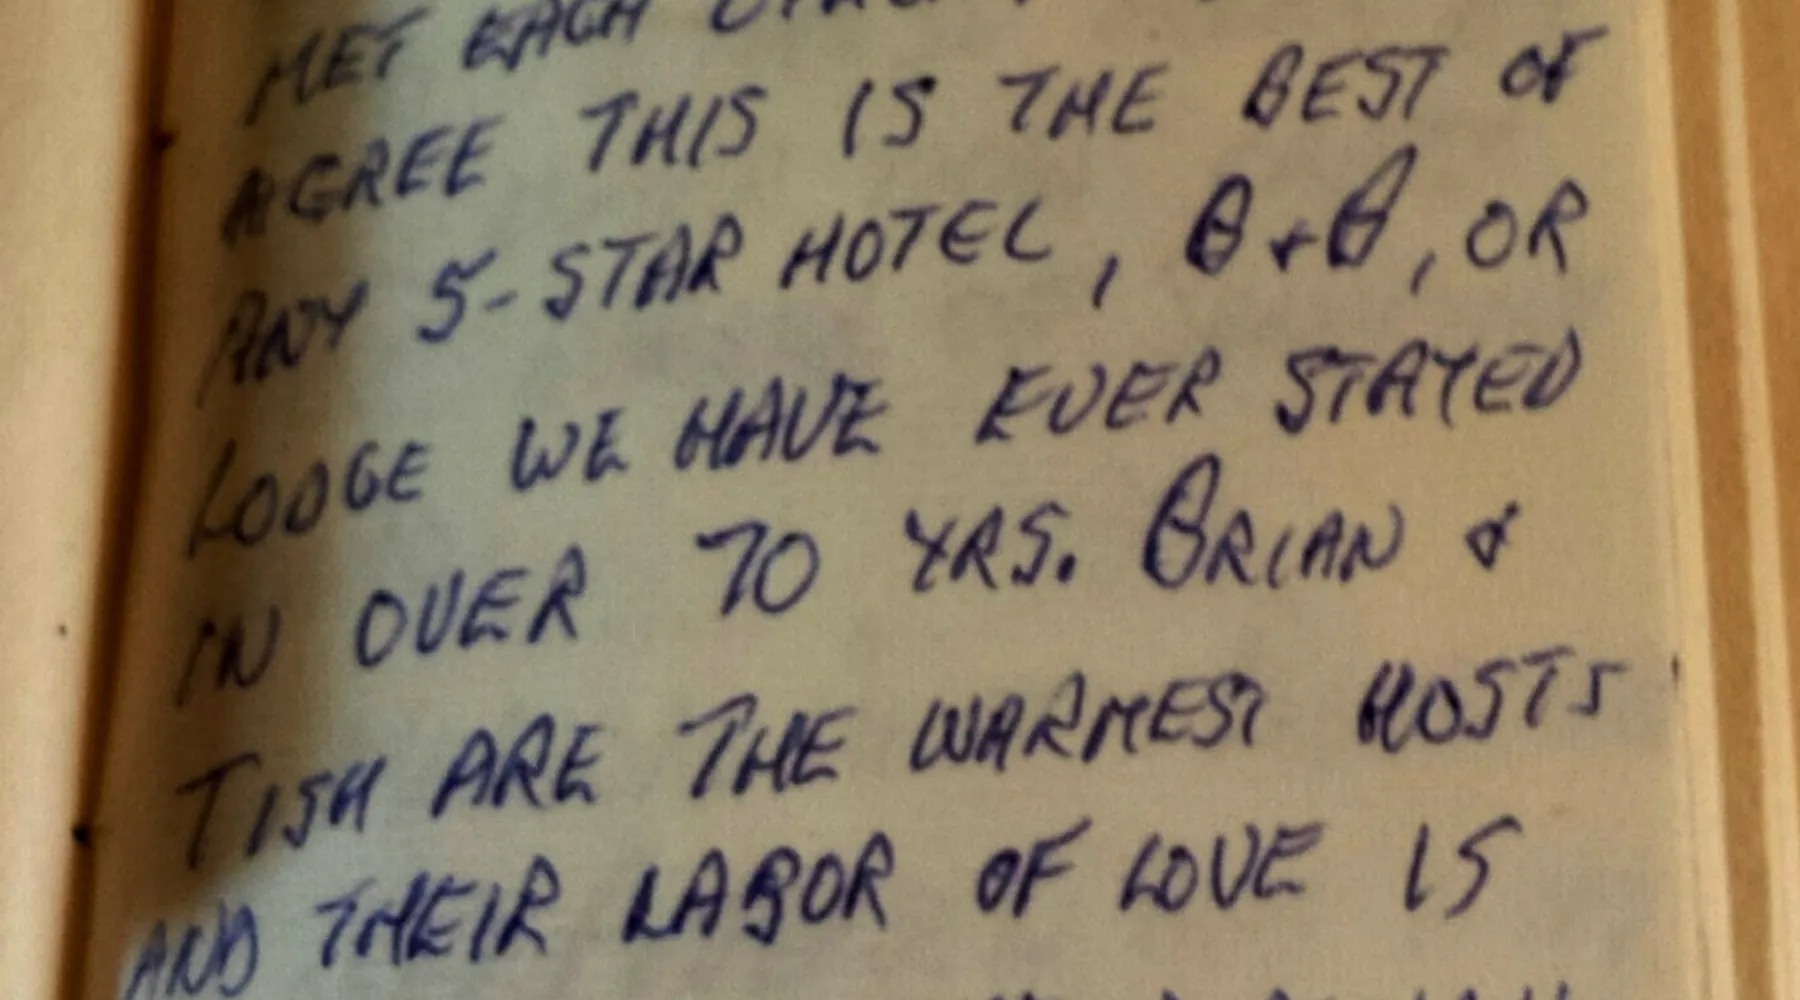 MET EACH OTHER
AGREE THIS IS THE BEST OF
ANY 5-STAR HOTEL, B+B, OR
LODGE WE HAVE EVER STAYED
IN OVER 70 YRS. BRIAN &
TISH ARE THE WARMEST HOSTS
AND THEIR LABOR OF LOVE IS